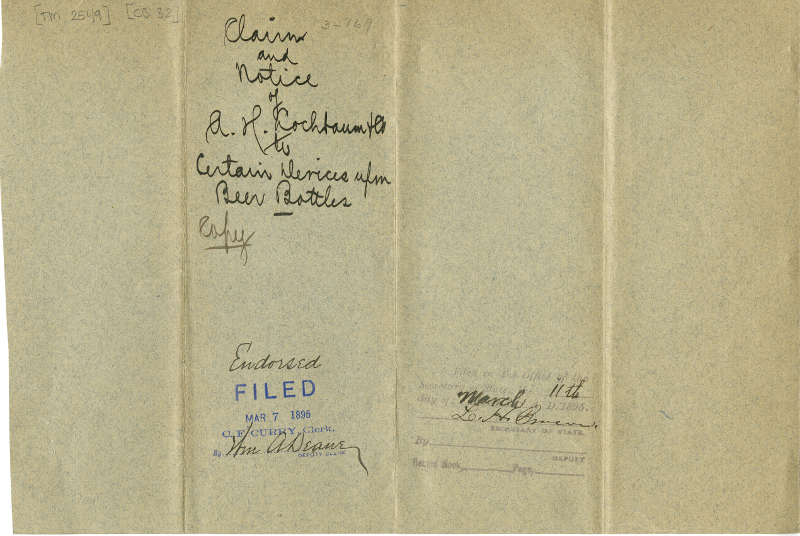 [TM 2549] [CB 32]
3-769
Claim
and
Notice
of
A. H. Kochbaum & Co
to
Certain Devices upon
Beer Bottles
Copy
Endorsed
FILED
MAR 7 1895
C. F. CURRY, Clerk.
By Wm A Deane
DEPUTY CLERK
Filed in the Office of the
Secretary of State, the 11th
day of March A. D. 1895.
L. H. Brown
SECRETARY OF STATE.
By
DEPUTY
Record Book, Page,